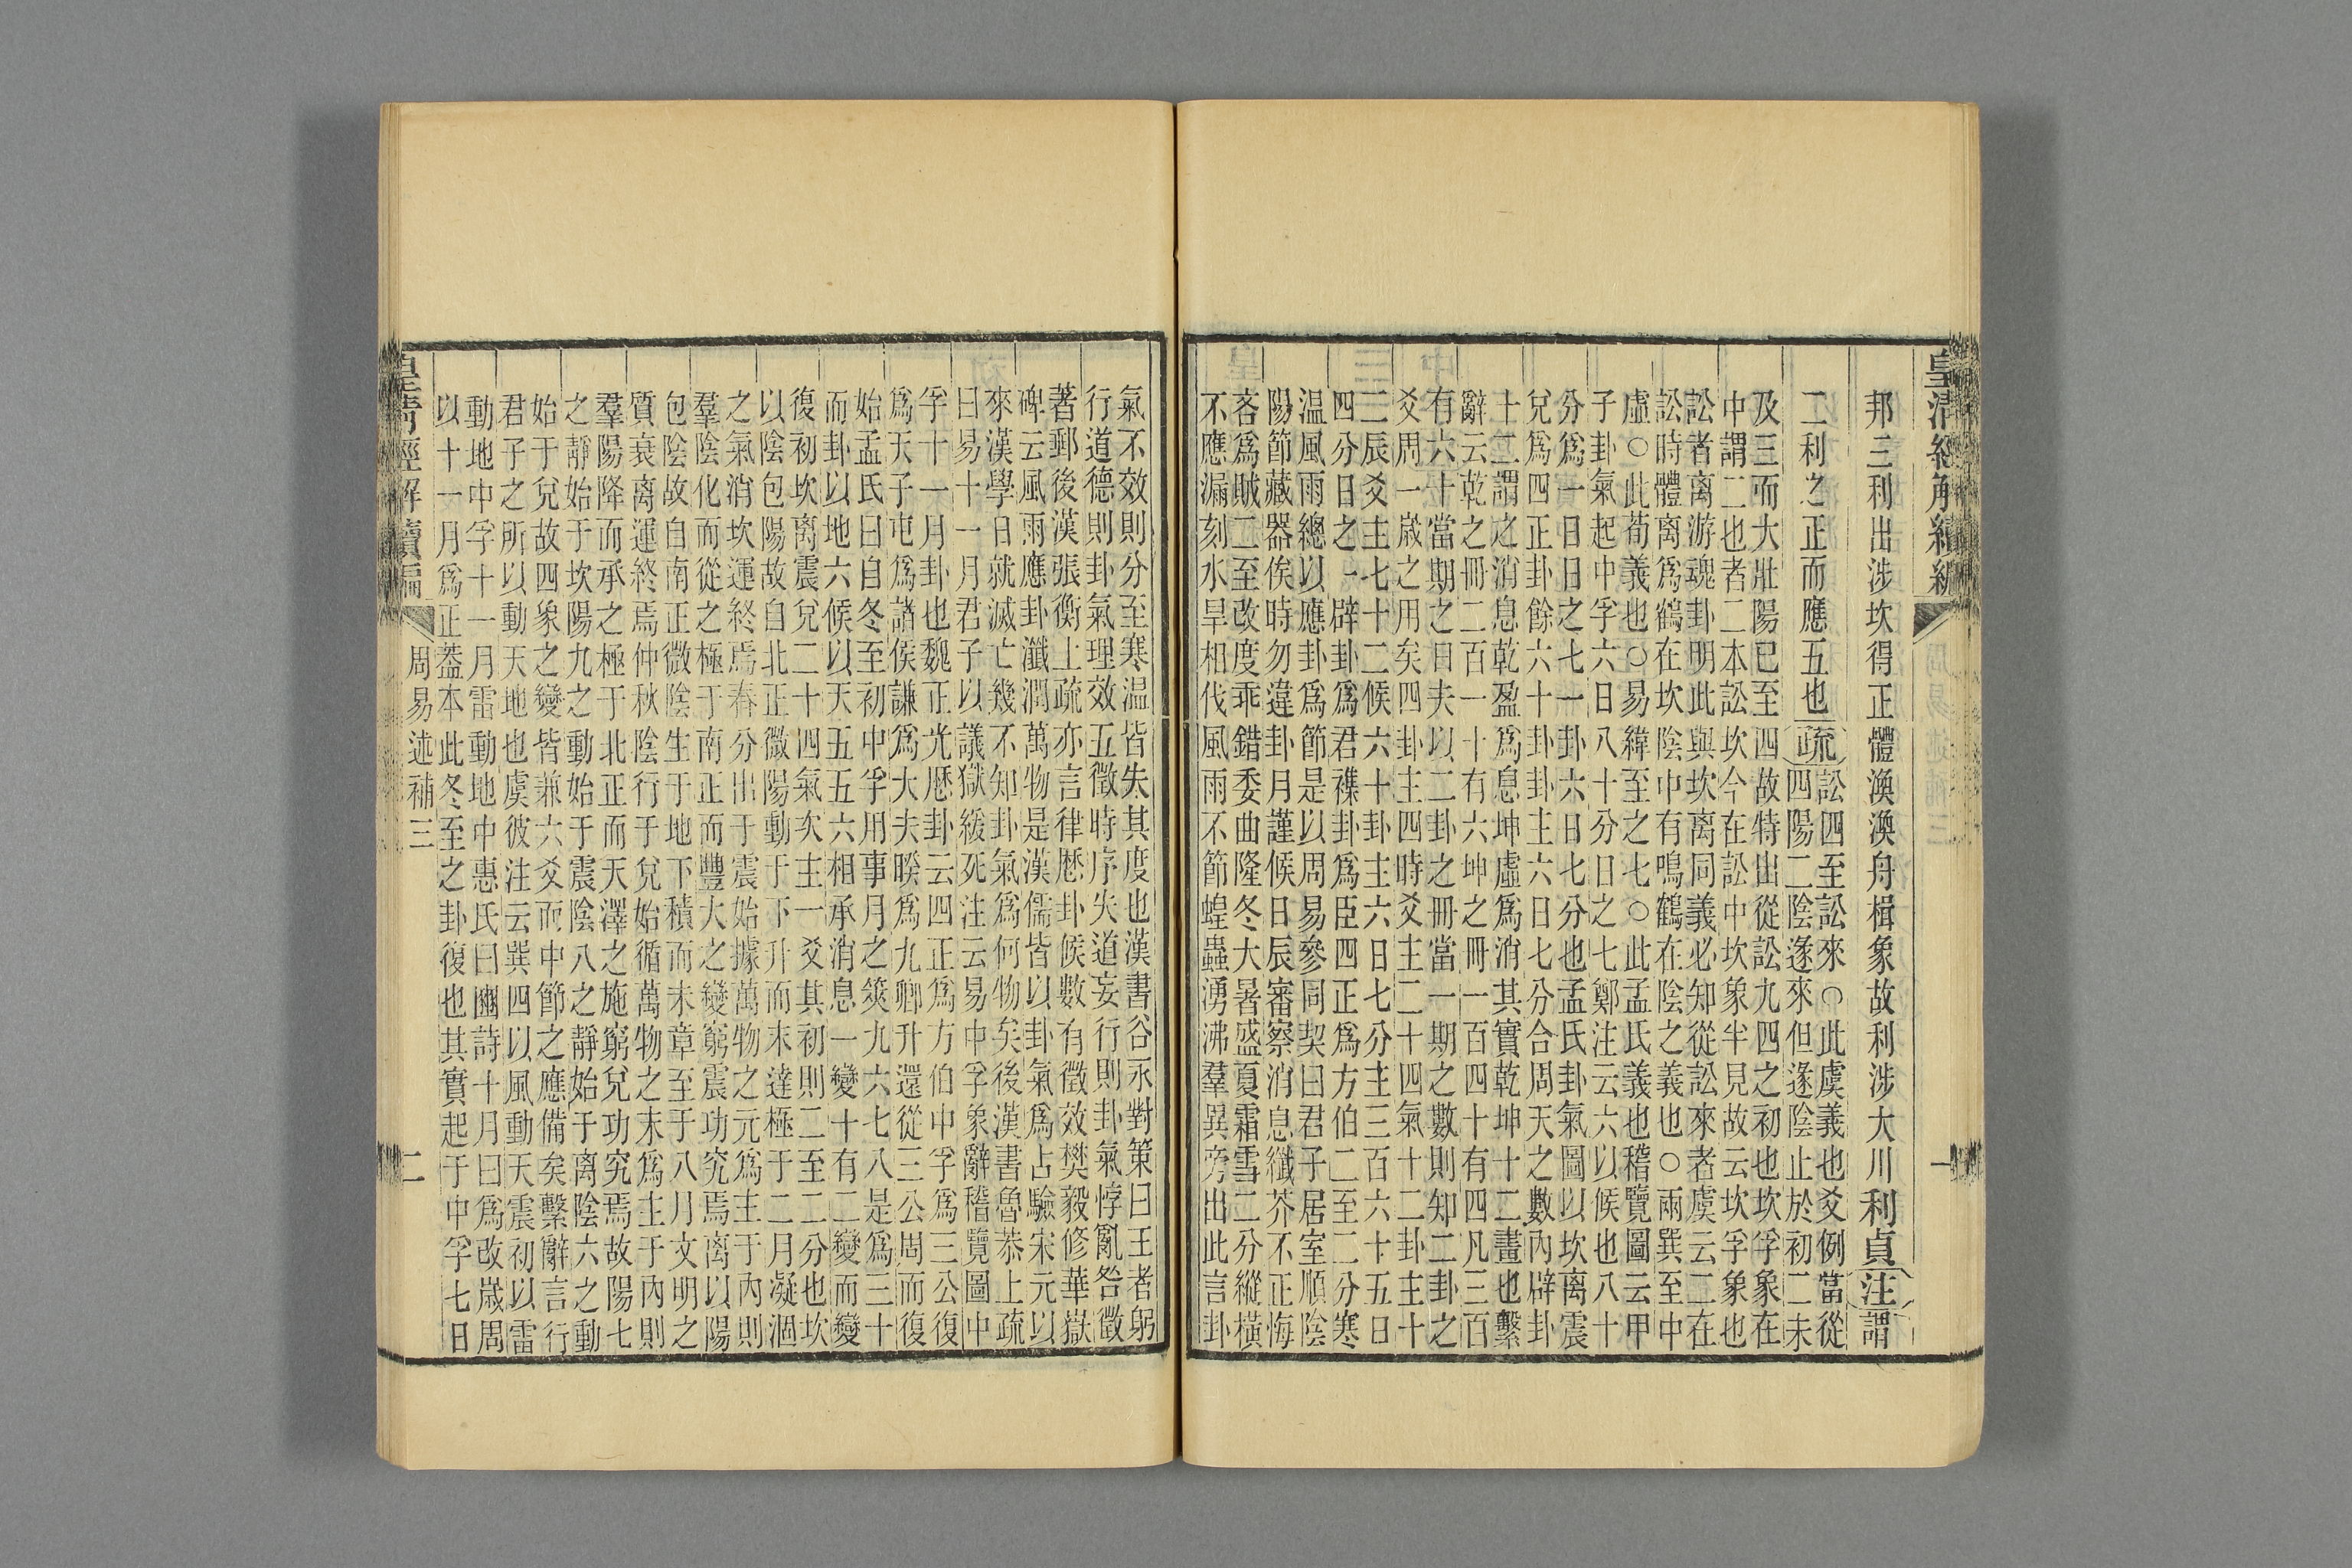 皇清經解續編
一
邦三利出涉坎得正體渙渙舟楫象故利涉大川利貞注謂
二利之正而應五也疏訟四至訟來○此虞義也爻例當從
四陽二陰遂來但遂陰止於初二未
及三而大壯陽已至四故特出從訟九四之初也坎孚象在
中謂二也者二本訟坎今在訟中坎象半見故云坎孚象也
訟者離游魂卦明此與坎離同義必知從訟來者虞云二在
訟時體離爲鶴在坎陰中有鳴鶴在陰之義也○兩巽至中
虛○此荀義也○易緯至之七○此孟氏義也稽覽圖云甲
子卦氣起中孚六日八十分日之七鄭注云六以候也八十
分爲一日日之七一卦六日七分也孟氏卦氣圖以坎離震
兌爲四正卦餘六十卦卦主六日七分合周天之數內辟卦
十二謂之消息乾盈爲息坤虛爲消其實乾坤十二畫也繫
辭云乾之冊二百一十有六坤之冊一百四十有四凡三百
有六十當期之日夫以二卦之冊當一期之數則知二卦之
爻周一歲之用矣四卦主四時爻主二十四氣十二卦主十
二辰爻主七十二候六十卦主六日七分主三百六十五日
四分日之一辟卦爲君襍卦爲臣四正爲方伯二至二分寒
温風雨總以應卦爲節是以周易參同契曰君子居室順陰
陽節藏器俟時勿違卦月謹候日辰審察消息纖芥不正悔
吝爲賊二至改度乖錯委曲隆冬大暑盛夏霜雪二分縱橫
不應漏刻水旱相伐風雨不節蝗蟲湧沸羣異旁出此言卦
氣不效則分至寒温皆失其度也漢書谷永對策曰王者躬
行道德則卦氣理效五徵時序失道妄行則卦氣悖亂咎徵
著郵後漢張衡上疏亦言律歷卦候數有徵效樊毅修華嶽
碑云風雨應卦瀸潤萬物是漢儒皆以卦氣爲占驗宋元以
來漢學日就滅亡幾不知卦氣爲何物矣後漢書魯恭上疏
曰易十一月君子以議獄緩死注云易中孚象辭稽覽圖中
孚十一月卦也魏正光歷卦云四正爲方伯中孚爲三公復
爲天子屯爲諸侯謙爲大夫睽爲九卿升還從三公周而復
始孟氏曰自冬至初中孚用事月之筴九六七八是爲三十
而卦以地六候以天五五六相承消息一變十有二變而變
復初坎離震兌二十四氣次主一爻其初則二至二分也坎
以陰包陽故自北正微陽動于下升而未達極于二月凝涸
之氣消坎運終焉春分出于震始據萬物之元爲主于內則
羣陰化而從之極于南正而豐大之變窮震功究焉離以陽
包陰故自南正微陰生于地下積而未章至于八月文明之
質衰離運終焉仲秋陰行于兌始循萬物之末爲主于內則
羣陽降而承之極于北正而天澤之施窮兌功究焉故陽七
之靜始于坎陽九之動始于震陰八之靜始于離陰六之動
始于兌故四象之變皆兼六爻而中節之應備矣繫辭言行
君子之所以動天地也虞彼注云巽四以風動天震初以雷
動地中孚十一月雷動地中惠氏曰豳詩十月曰爲改歲周
以十一月爲正葢本此冬至之卦復也其實起于中孚七日
皇清經解續編
周易述補三
二